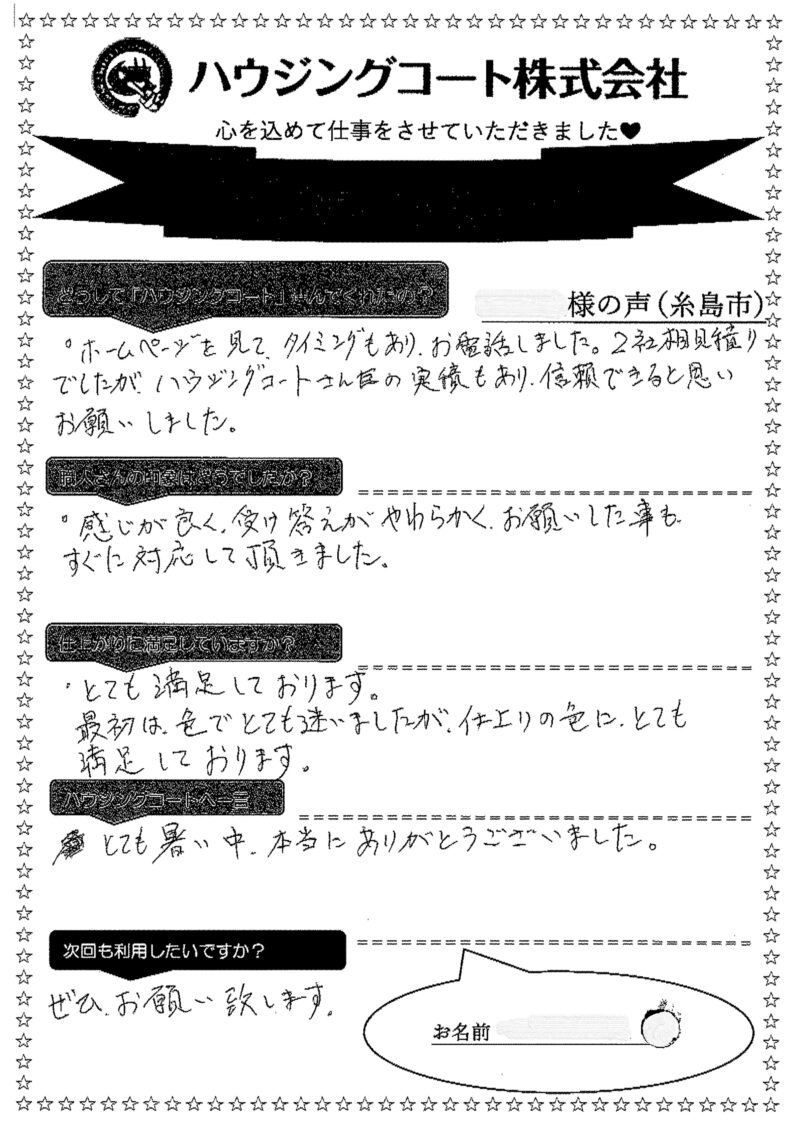 ハウジングコート株式会社
心を込めて仕事をさせていただきました♥
どうして「ハウジングコート」選んでくれたの？
様の声（糸島市）
°ホームページを見て、タイミングもあり、お電話しました。2社相見積り
でしたが、ハウジングコートさんの実績もあり、信頼できると思い
お願いしました。
職人さんの印象はどうでしたか？
°感じが良く、受け答えがやわらかく、お願いした事も
すぐに対応して頂きました。
仕上がりに満足していますか？
・とても満足しております。
最初は、色でとても迷いましたが、仕上りの色に、とても
満足しております。
ハウジングコートへ一言
とても暑い中、本当にありがとうございました。
次回も利用したいですか？
ぜひ、お願い致します。
お名前